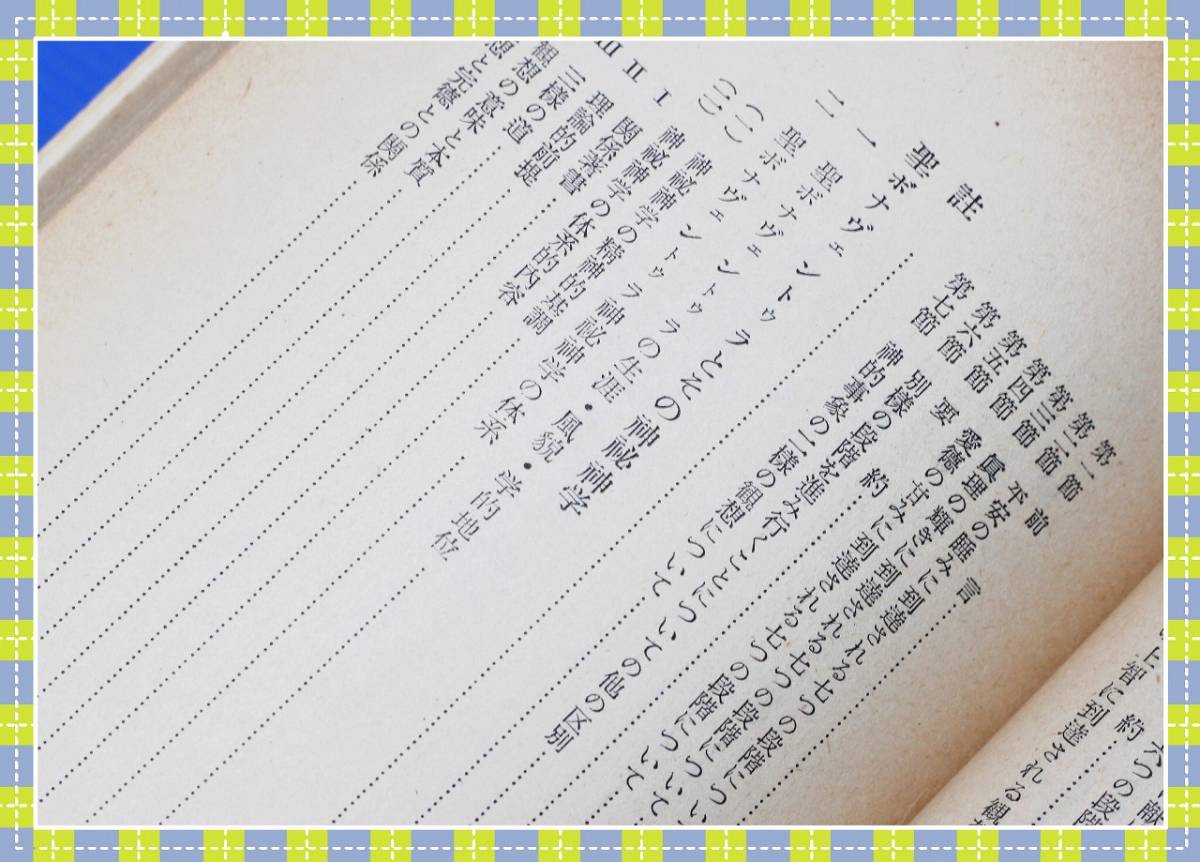 六つの献
六つの段階
約
上智に到達される観
第一節 前言
第二節 平安の睡みに到達される七つの段階につい
第三節 眞理の輝きに到達される七つの段階につい
第四節 愛德の甘みに到達される七つの段階について
第五節 要約
第六節 別様の段階を進み行くことについての他の区別
第七節 神的事象の二様の観想について
註
聖ボナヴェントゥラとその神秘神学
一 聖ボナヴェントゥラの生涯・風貌・学的地位
二 聖ボナヴェントゥラ神秘神学・の体系
(一) 神秘神学の精神的基調
(二) 神秘神学の体系的内容
I 関係著書
II 理論的前提
III 三様の道
観想の意味と本質
想と完徳との関係